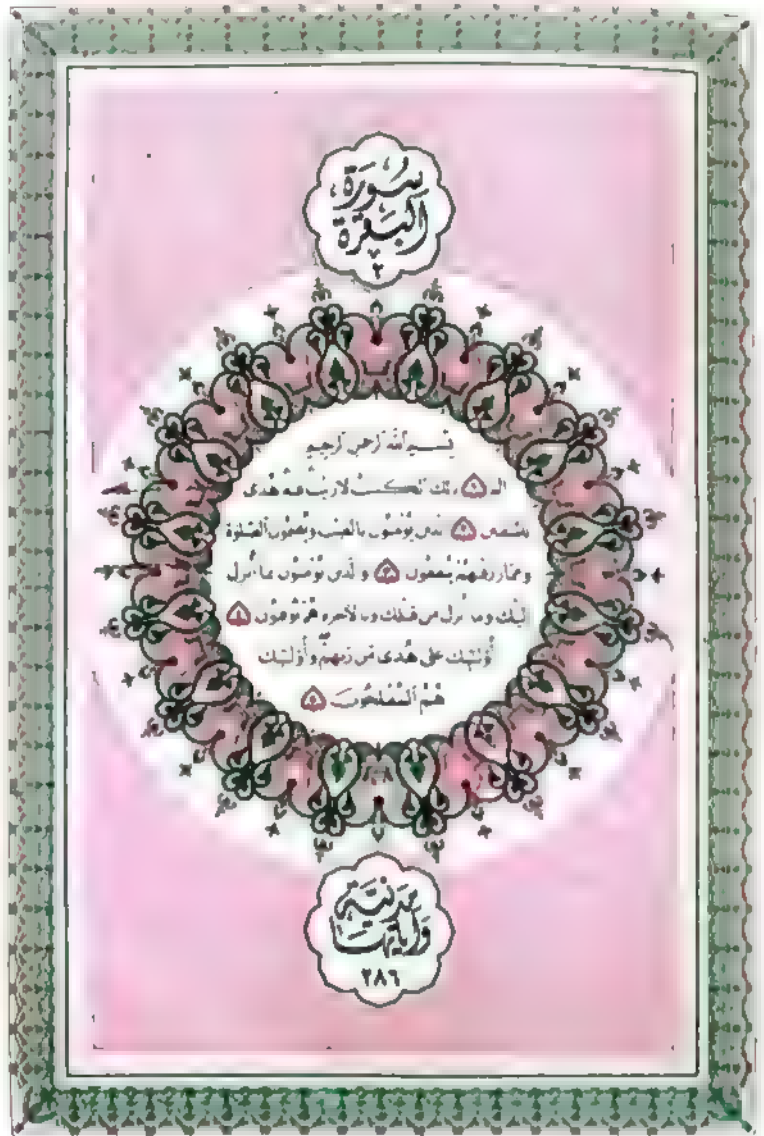 سُورَةُ
البَقَرَة
٢
بِسْمِ اللَّهِ الرَّحْمَنِ الرَّحِيمِ
الم ۝١ ذَلِكَ الْكِتَبُ لَا رَيْبَ فِيهِ هُدًى
لِلْمُتَّقِينَ ۝٢ الَّذِينَ يُؤْمِنُونَ بِالْغَيْبِ وَيُقِيمُونَ الصَّلَوةَ
وَمِمَّا رَزَقْنَهُمْ يُنْفِقُونَ ۝٣ وَالَّذِينَ يُؤْمِنُونَ بِمَا أُنْزِلَ
إِلَيْكَ وَمَا أُنْزِلَ مِنْ قَبْلِكَ وَبِالْآخِرَةِ هُمْ يُوقِنُونَ ۝٤
أُوْلَئِكَ عَلَى هُدًى مِنْ رَبِّهِمْ وَأُوْلَئِكَ
هُمُ الْمُفْلِحُونَ ۝٥
مَدَنِيَّة
وَآيَاتُهَا
٢٨٦